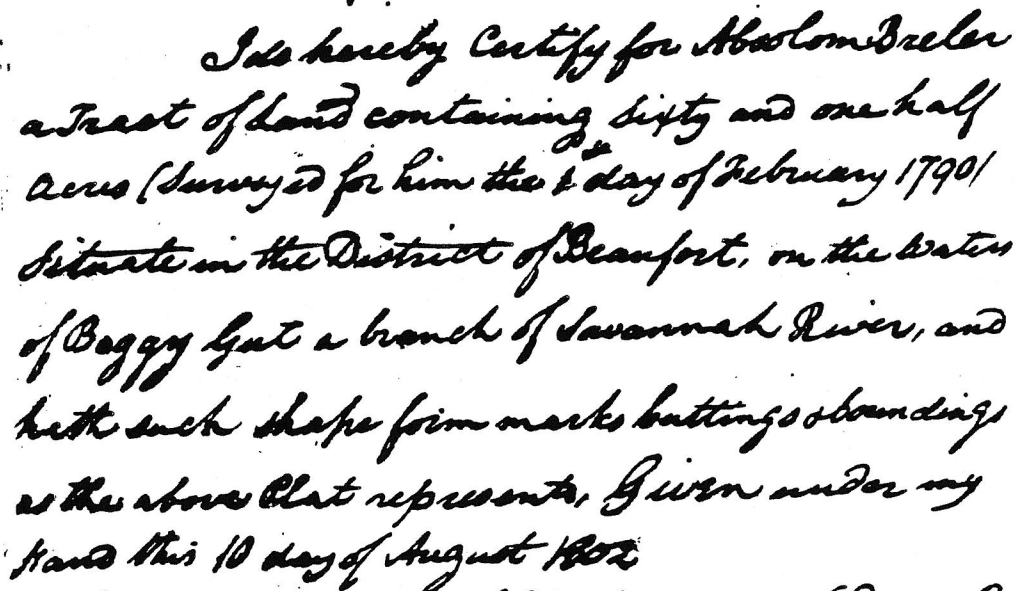 I do hereby Certify for Absolom Breler
a Tract of Land containing sixty and one half
Acres (Surveyed for him the day of February 1790)
Situate in the District of Beaufort, on the Waters
of Boggy Gut a branch of Savannah River, and
hath such shape form marks buttings & boundings
as the above Plat represents, Given under my
Hand this 10 day of August 1802